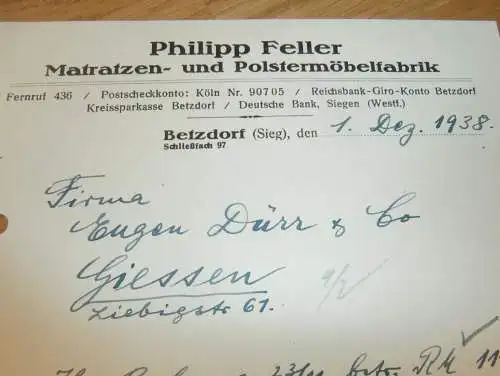 Philipp Feller
Matratzen- und Polstermöbelfabrik
Fernruf 436 / Postscheckkonto: Köln Nr. 90705 / Reichsbank-Giro-Konto Betzdorf
Kreissparkasse Betzdorf / Deutsche Bank, Siegen (Westf.)
Betzdorf (Sieg), den 1. Dez. 1938.
Schließfach 97
Firma
Eugen Dürr & Co
Giessen
Liebigstr 61.